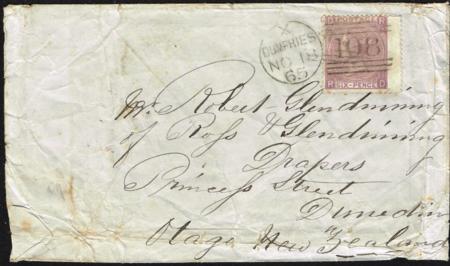 X
DUMFRIES
NO 18
65
108
R SIX-PENCE D
Mr. Robert Glendinning
of Ross & Glendinning
Drapers
Princess Street
Dunedin
Otago New Zealand